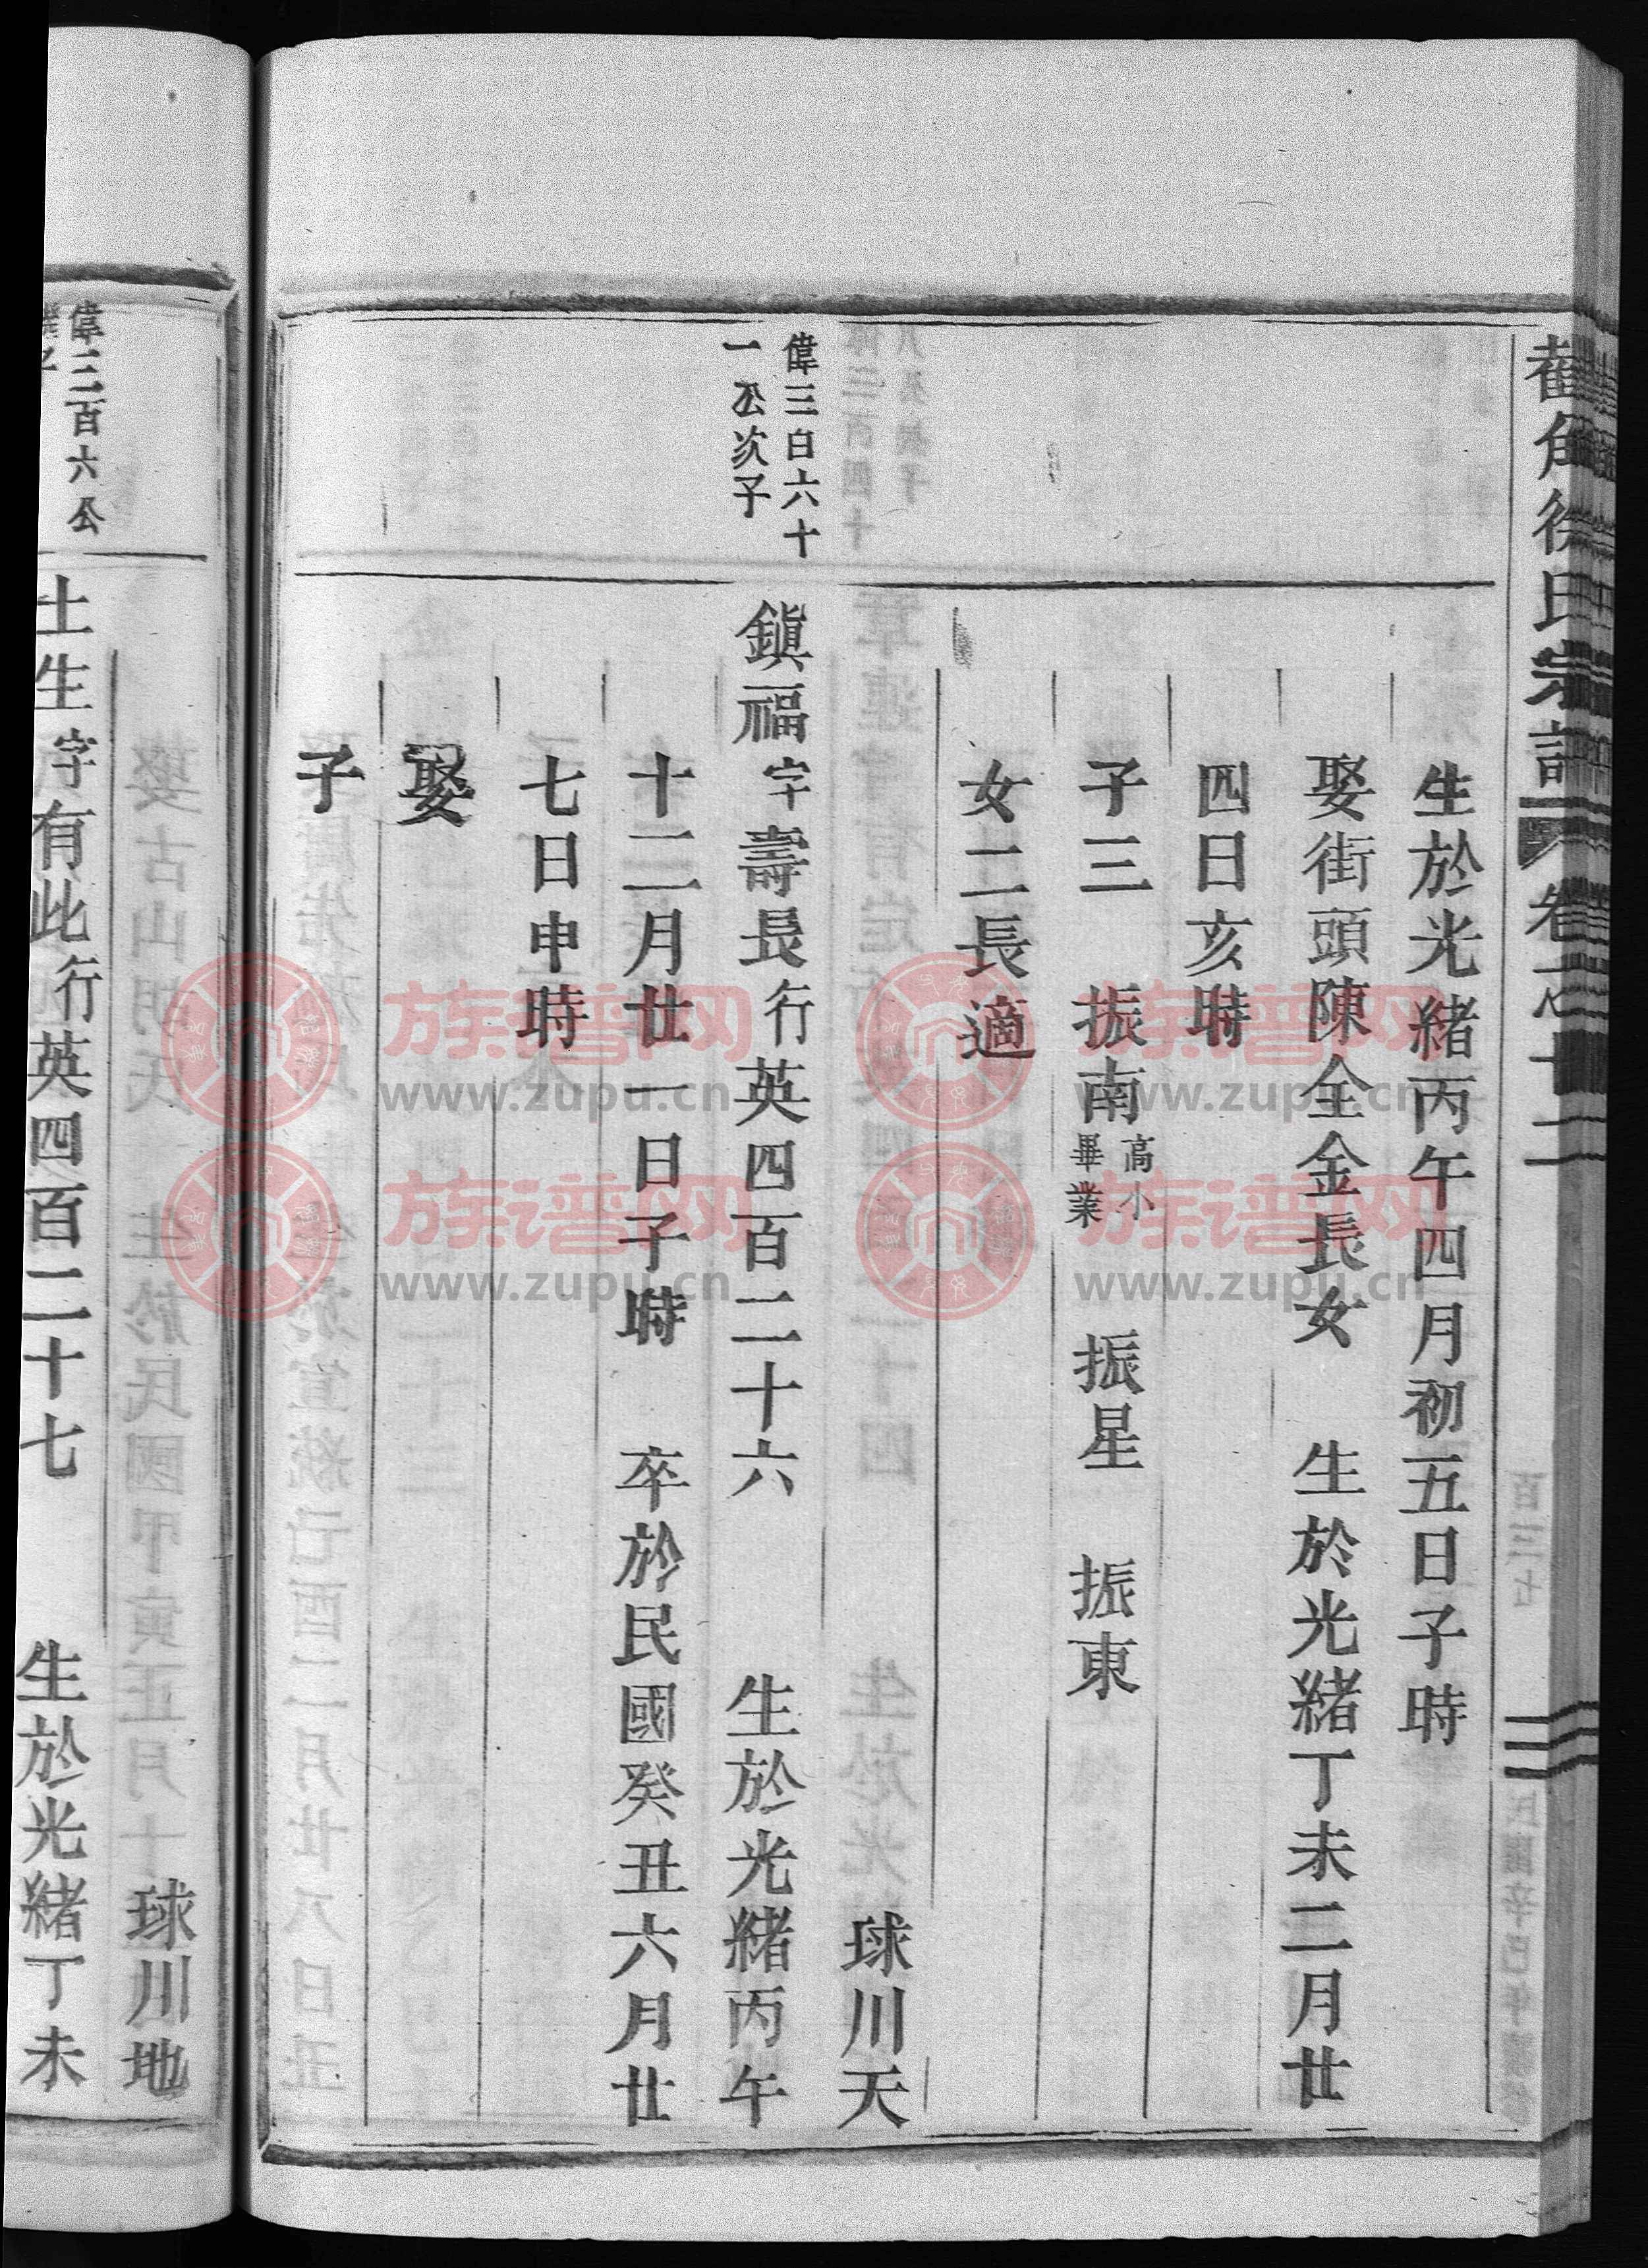 徐氏宗譜
生於光緒丙午四月初五日子時
娶街頭陳全金長女 生於光緒丁未二月廿
四日亥時
子三 振南 高小畢業 振星 振東
女二長適
球川天
偉三百六十
一公次子
鎮福字壽長行英四百二十六 生於光緒丙午
十二月廿一日子時 卒於民國癸丑六月廿
七日申時
娶
子
球川地
偉三百六公
土生字有此行英四百二十七 生於光緒丁未
族谱网
www.zupu.cn
族谱网
www.zupu.cn
族谱网
www.zupu.cn
族谱网
www.zupu.cn